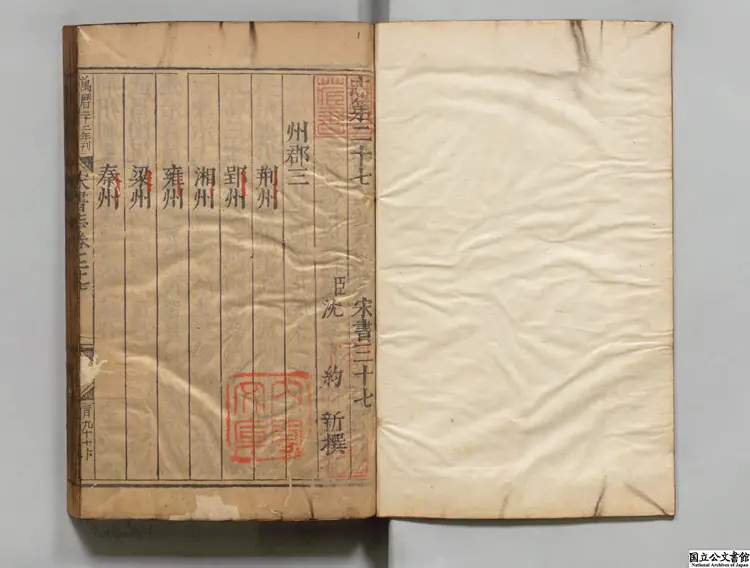 志第二十七 宋書三十七
臣沈 約 新撰
州郡三
荆州
郢州
湘州
雍州
梁州
秦州
萬曆
年刊
國立公文書館
National Archives of Japan